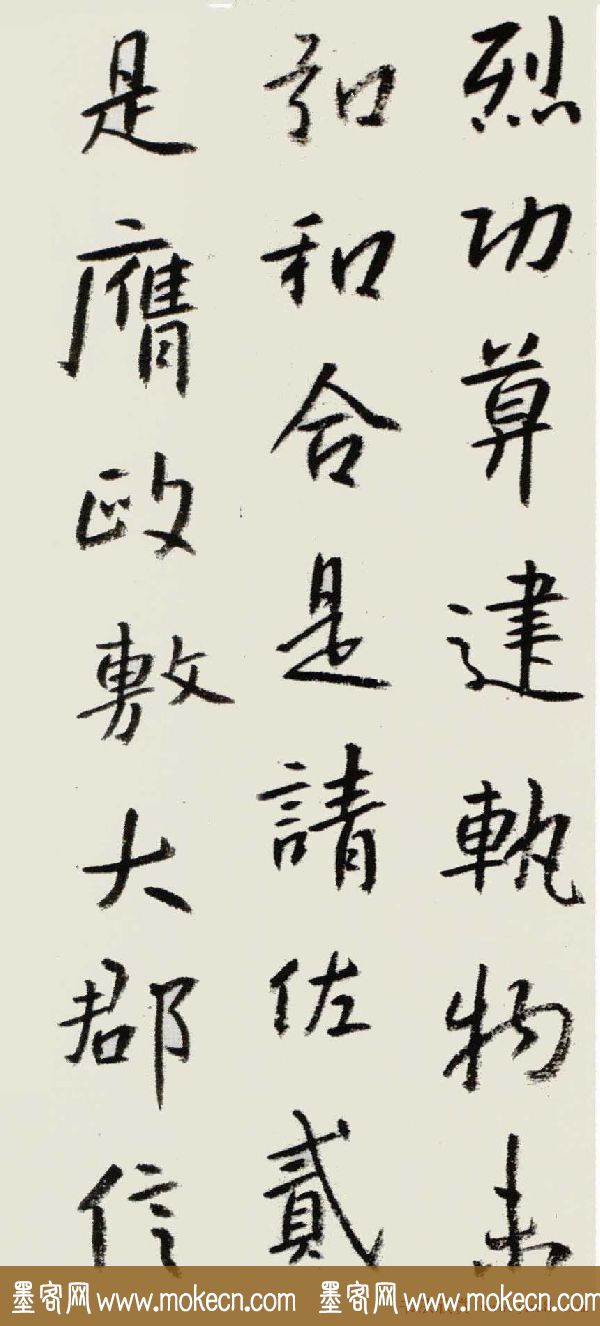 烈功算建軌物
弘和合是請佐貳
是膺政敷大郡信
墨客网 www.mokecn.com 墨客网 www.mokecn.com